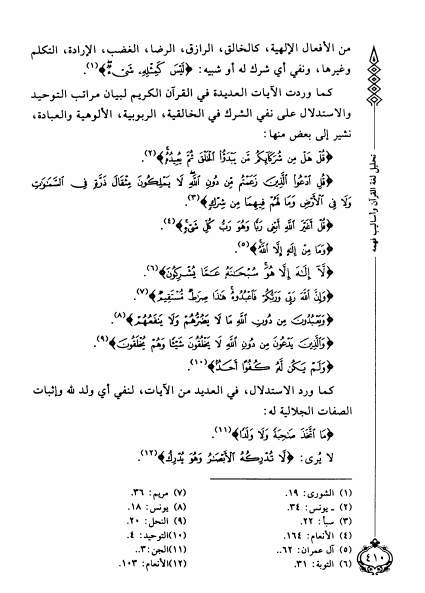 من الأفعال الإلهية، كالخالق، الرازق، الرضا، الغضب، الإرادة، التكلم
وغيرها، ونفي أي شرك له أو شبيه: ﴿لَيْسَ كَمِثْلِهِ شَيْءٌ﴾(١).
كما وردت الآيات العديدة في القرآن الكريم لبيان مراتب التوحيد
والاستدلال على نفي الشرك في الخالقية، الربوبية، الألوهية والعبادة،
نشير إلى بعض منها:
﴿قُلْ هَلْ مِن شُرَكَائِكُم مَّن يَبْدَؤُا الْخَلْقَ ثُمَّ يُعِيدُهُ﴾(٢).
﴿قُلِ ادْعُوا الَّذِينَ زَعَمْتُم مِّن دُونِ اللَّهِ لَا يَمْلِكُونَ مِثْقَالَ ذَرَّةٍ فِي السَّمَاوَاتِ
وَلَا فِي الْأَرْضِ وَمَا لَهُمْ فِيهِمَا مِن شِرْكٍ﴾(٣).
﴿قُلْ أَغَيْرَ اللَّهِ أَبْغِي رَبًّا وَهُوَ رَبُّ كُلِّ شَيْءٍ﴾(٤).
﴿وَمَا مِنْ إِلَهٍ إِلَّا اللَّهُ﴾(٥).
﴿لَّا إِلَهَ إِلَّا هُوَ سُبْحَانَهُ عَمَّا يُشْرِكُونَ﴾(٦).
﴿وَإِنَّ اللَّهَ رَبِّي وَرَبُّكُمْ فَاعْبُدُوهُ هَذَا صِرَاطٌ مُّسْتَقِيمٌ﴾(٧).
﴿وَيَعْبُدُونَ مِن دُونِ اللَّهِ مَا لَا يَضُرُّهُمْ وَلَا يَنفَعُهُمْ﴾(٨).
﴿وَالَّذِينَ يَدْعُونَ مِن دُونِ اللَّهِ لَا يَخْلُقُونَ شَيْئًا وَهُمْ يُخْلَقُونَ﴾(٩).
﴿وَلَمْ يَكُن لَّهُ كُفُوًا أَحَدٌ﴾(١٠).
كما ورد الاستدلال، في العديد من الآيات، لنفي أي ولد لله وإثبات
الصفات الجلالية له:
﴿مَا اتَّخَذَ صَاحِبَةً وَلَا وَلَدًا﴾(١١).
لا يُرى: ﴿لَّا تُدْرِكُهُ الْأَبْصَارُ وَهُوَ يُدْرِكُ﴾(١٢).
(١) الشورى: ١٩.
(٢) ـ يونس: ٣٤.
(٣) سبأ: ٢٢.
(٤) الأنعام: ١٦٤.
(٥) آل عمران: ٦٢..
(٦) التوبة: ٣١.
(٧) مريم: ٣٦.
(٨) يونس: ١٨.
(٩) النحل: ٢٠.
(١٠)التوحيد: ٤.
(١١)الجن:٣..
(١٢)الأنعام: ١٠٣.
تحليل لغة القرآن وأساليب فهمه
٤١٠